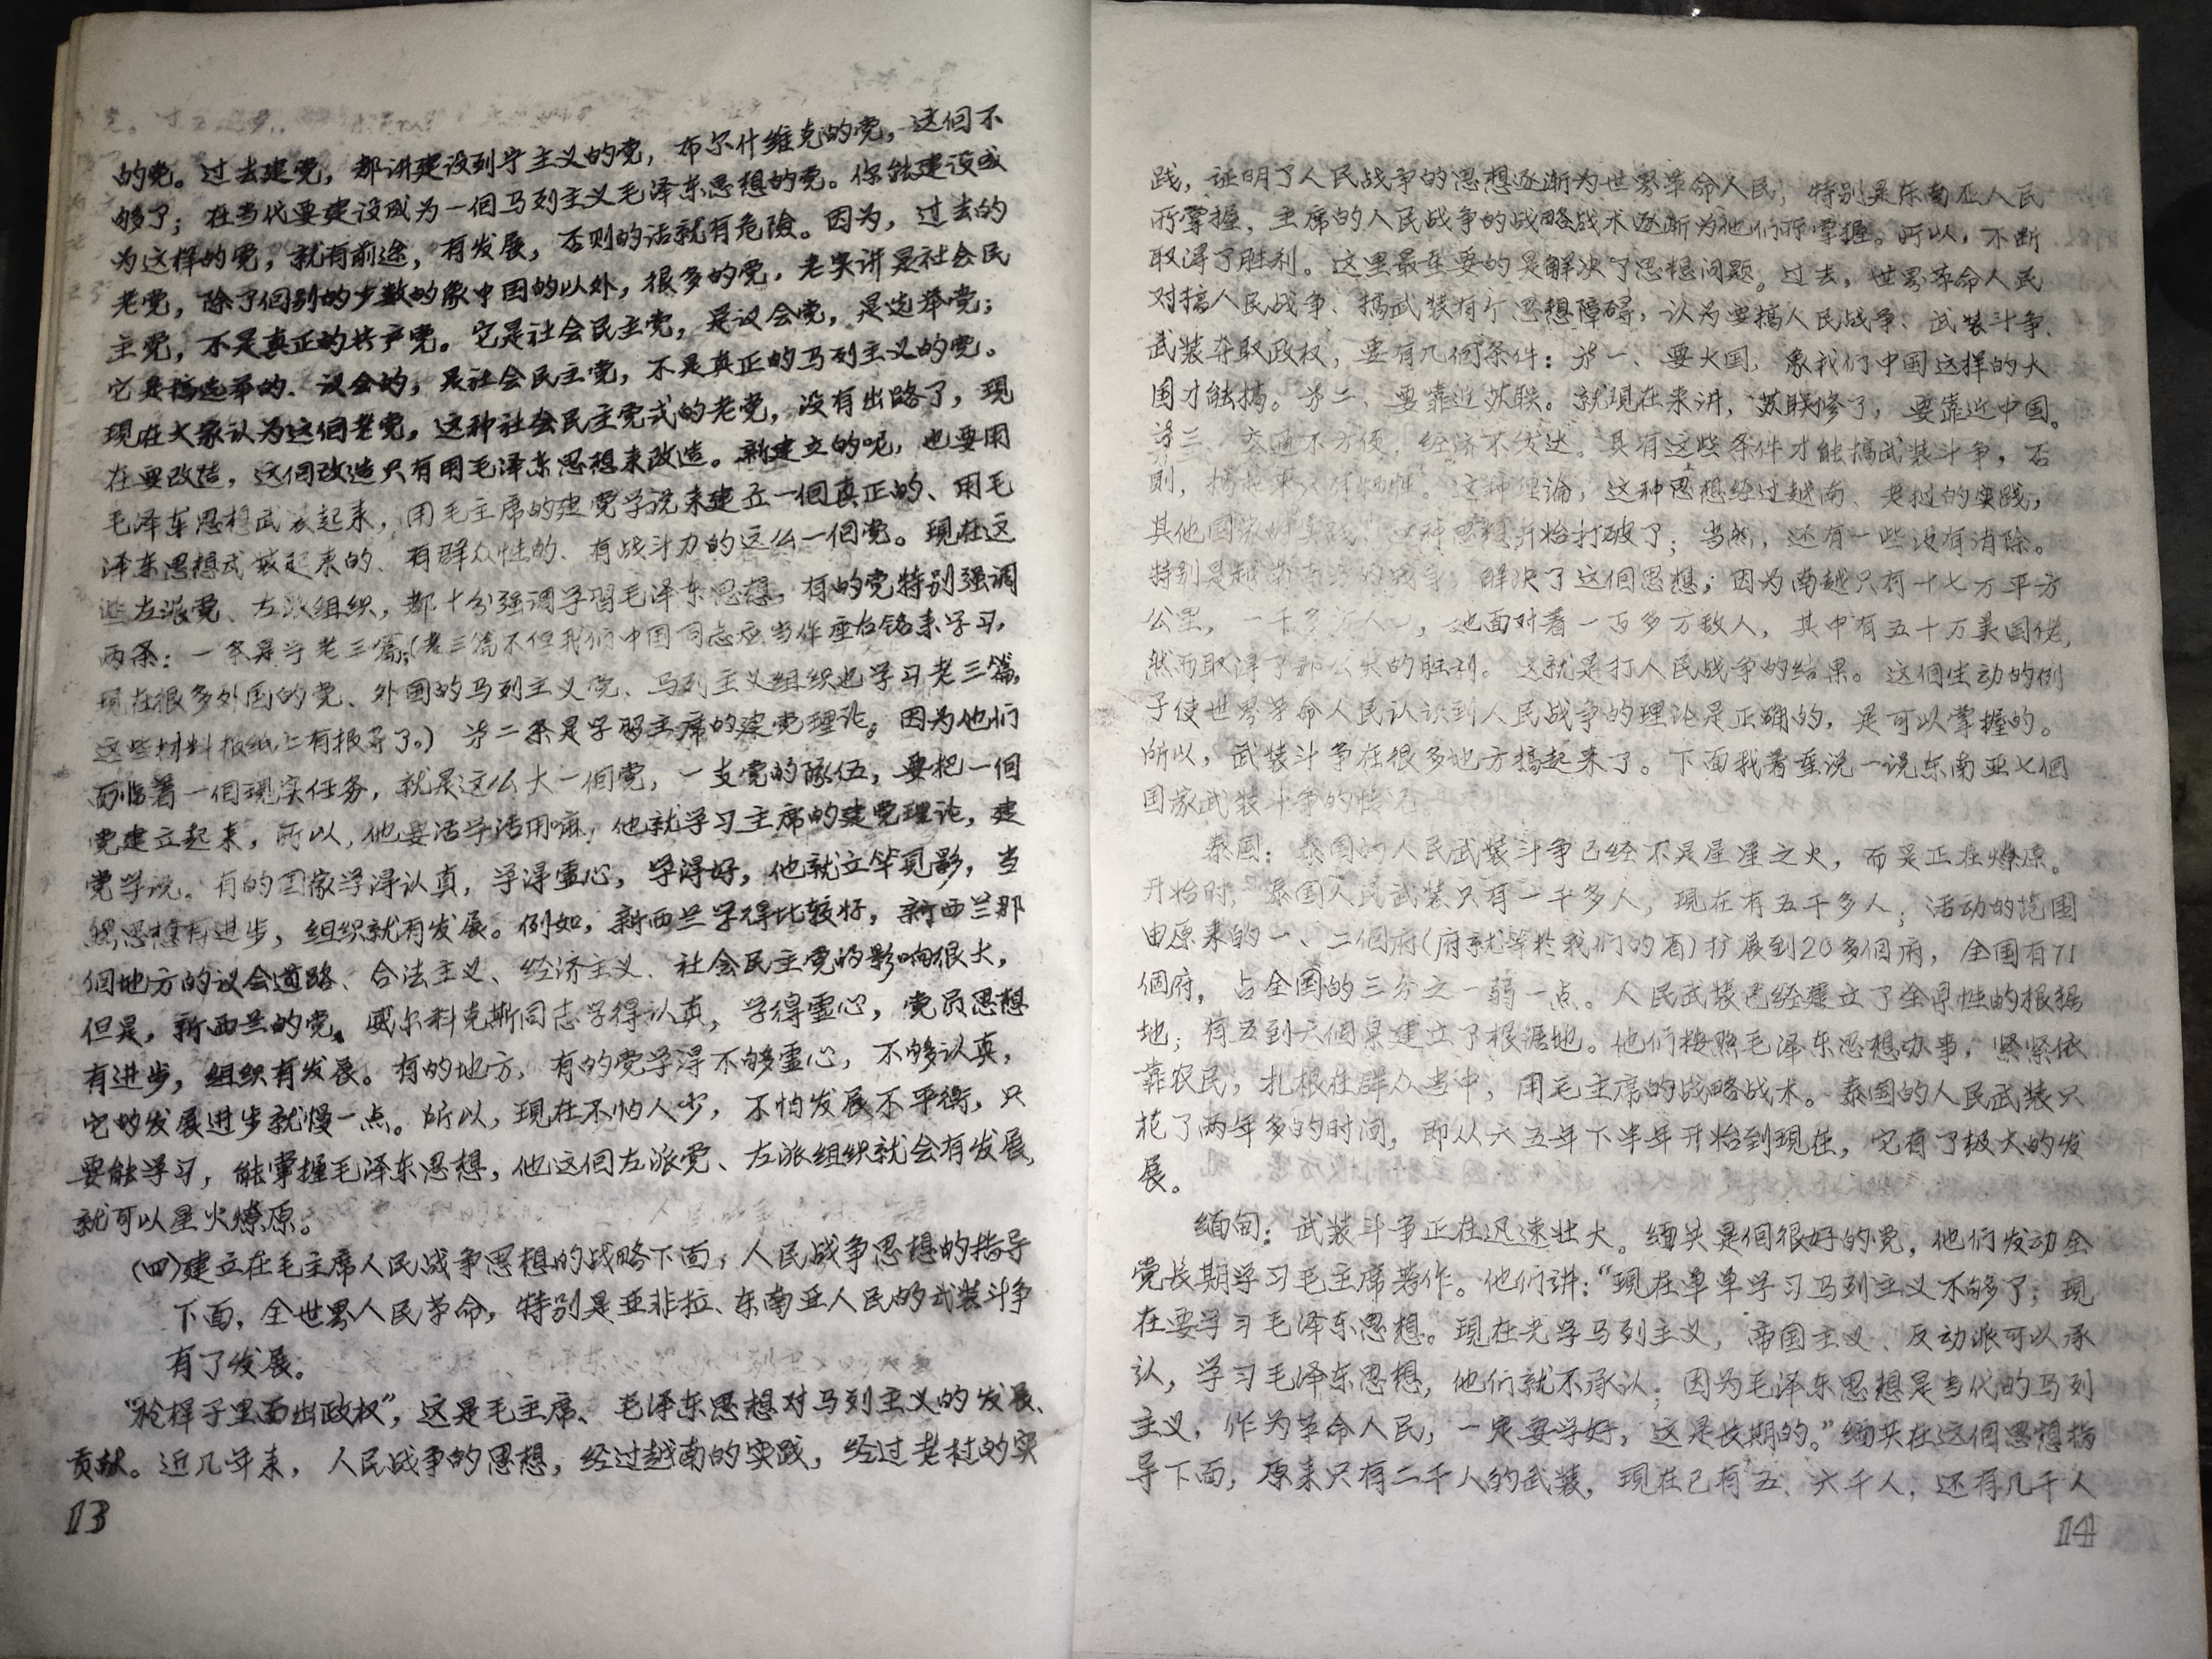 的党。过去建党，都讲建设列宁主义的党，布尔什维克的党，这個不
够了；在当代要建设成为一個马列主义毛泽东思想的党。你能建设成
为这样的党，就有前途，有发展，否则的话就有危险。因为，过去的
老党，除了個别的少数的象中国的以外，很多的党，老实讲是社会民
主党，不是真正的共产党。它是社会民主党，是议会党，是选举党；
它是搞选举的、议会的，是社会民主党，不是真正的马列主义的党。
现在大家认为这個老党，这种社会民主党式的老党，没有出路了，现
在要改造，这個改造只有用毛泽东思想来改造。新建立的呢，也要用
毛泽东思想武装起来，用毛主席的建党学说来建立一個真正的、用毛
泽东思想武装起来的、有群众性的、有战斗力的这么一個党。现在这
些左派党、左派组织，都十分强调学習毛泽东思想，有的党特别强调
两条：一条是学老三篇；(老三篇不但我们中国同志应当作座右铭来学习，
现在很多外国的党、外国的马列主义党、马列主义组织也学习老三篇，
这些材料报纸上有报导了。) 第二条是学習主席的建党理论。因为他们
面临着一個现实任务，就是这么大一個党，一支党的队伍，要把一個
党建立起来，所以，他要活学活用嘛，他就学习主席的建党理论，建
党学说。有的国家学得认真，学得虚心，学得好，他就立竿见影，当
然思想有进步，组织就有发展。例如，新西兰学得比较好，新西兰那
個地方的议会道路、合法主义、经济主义、社会民主党的影响很大，
但是，新西兰的党，威尔科克斯同志学得认真，学得虚心，党员思想
有进步，组织有发展。有的地方，有的党学得不够虚心，不够认真，
它的发展进步就慢一点。所以，现在不怕人少，不怕发展不平衡，只
要能学习，能掌握毛泽东思想，他这個左派党、左派组织就会有发展，
就可以星火燎原。
(四)建立在毛主席人民战争思想的战略下面，人民战争思想的指导
下面，全世界人民革命，特别是亚非拉、东南亚人民的武装斗争
有了发展。
“枪杆子里面出政权”，这是毛主席、毛泽东思想对马列主义的发展、
贡献。近几年来，人民战争的思想，经过越南的实践，经过老挝的实
13
践，证明了人民战争的思想逐渐为世界革命人民，特别是东南亚人民
所掌握，主席的人民战争的战略战术逐渐为他们所掌握。所以，不断
取得了胜利。这里最重要的是解决了思想问题。过去，世界革命人民
对搞人民战争、搞武装有个思想障碍，认为要搞人民战争、武装斗争、
武装夺取政权，要有几個条件：第一、要大国，象我们中国这样的大
国才能搞。第二、要靠近苏联。就现在来讲，苏联修了，要靠近中国。
第三、交通不方便，经济不发达。具有这些条件才能搞武装斗争，否
则，搞起来只有牺牲。这种理论，这种思想经过越南、老挝的实践，
其他国家的实践，这种思想开始打破了；当然，还有一些没有消除。
特别是越南南方的战争，解决了这個思想；因为南越只有十七万平方
公里，一千多万人口，他面对着一百多万敌人，其中有五十万美国佬，
然而取得了那么大的胜利。这就是打人民战争的结果。这個生动的例
子使世界革命人民认识到人民战争的理论是正确的，是可以掌握的。
所以，武装斗争在很多地方搞起来了。下面我着重说一说东南亚七個
国家武装斗争的情况。
泰国：泰国的人民武装斗争已经不是星星之火，而是正在燎原。
开始时，泰国人民武装只有一千多人，现在有五千多人；活动的范围
由原来的一、二個府(府就等於我们的省)扩展到20多個府，全国有71
個府，占全国的三分之一弱一点。人民武装已经建立了全县性的根据
地；有五到六個县建立了根据地。他们按照毛泽东思想办事，紧紧依
靠农民，扎根在群众当中，用毛主席的战略战术。泰国的人民武装只
花了两年多的时间，即从六五年下半年开始到现在，它有了极大的发
展。
缅甸：武装斗争正在迅速壮大。缅共是個很好的党，他们发动全
党长期学习毛主席著作。他们讲：“现在单单学习马列主义不够了；现
在要学习毛泽东思想。现在光学马列主义，帝国主义、反动派可以承
认，学习毛泽东思想，他们就不承认；因为毛泽东思想是当代的马列
主义，作为革命人民，一定要学好，这是长期的。”缅共在这個思想指
导下面，原来只有二千人的武装，现在已有五、六千人，还有几千人
14